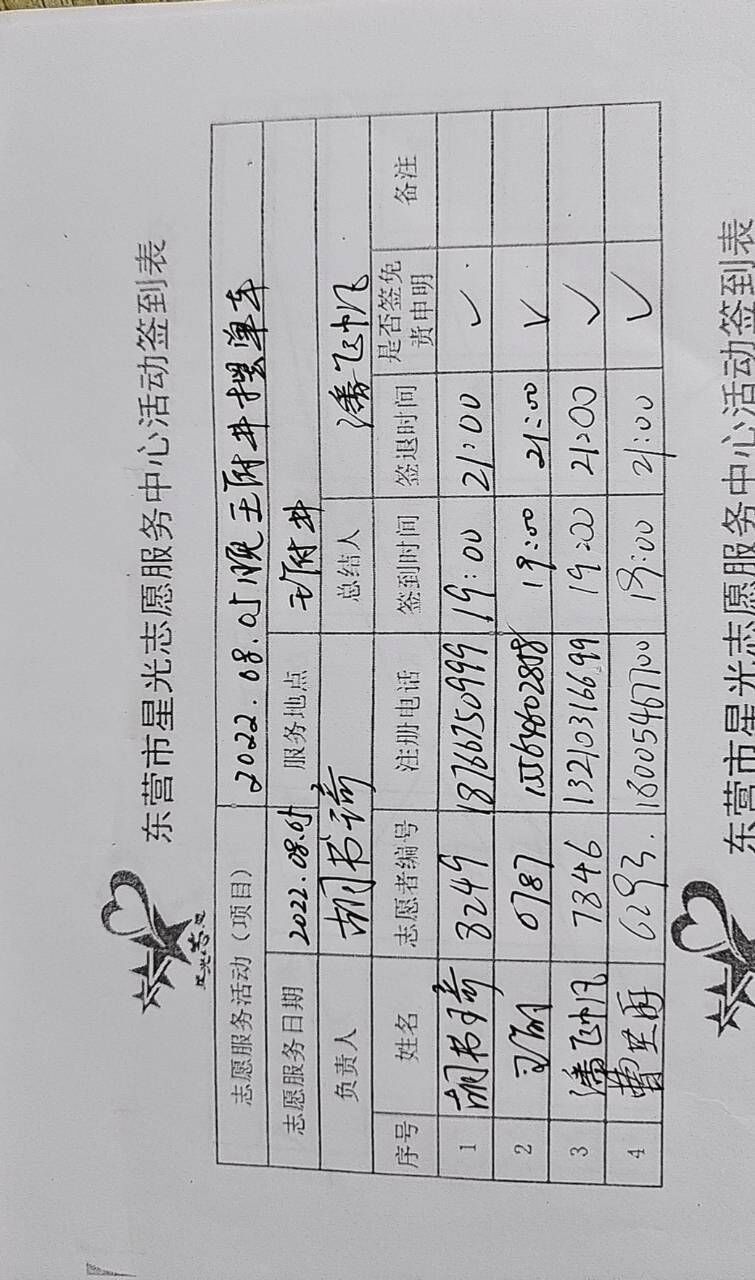 东营市星光志愿服务中心活动签到表
志愿服务活动（项目） 2022.08.05晚王府井摆单车
志愿服务日期 2022.08.05 服务地点 王府井
负责人 胡书琦 总结人 潘飞帆
序号 姓名 志愿者编号 注册电话 签到时间 签退时间 是否签免责申明 备注
1 胡书琦 8249 18766750999 19:00 21:00 ✓
2 0787 19:00 21:00 ✓
3 潘飞帆 7346 13210316699 19:00 21:00 ✓
4 6293. 18005467700 19:00 21:00 ✓
东营市星光志愿服务中心活动签到表